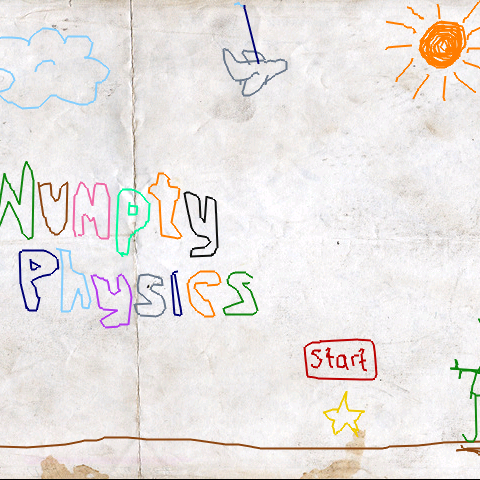 Numpty
Physics
Start